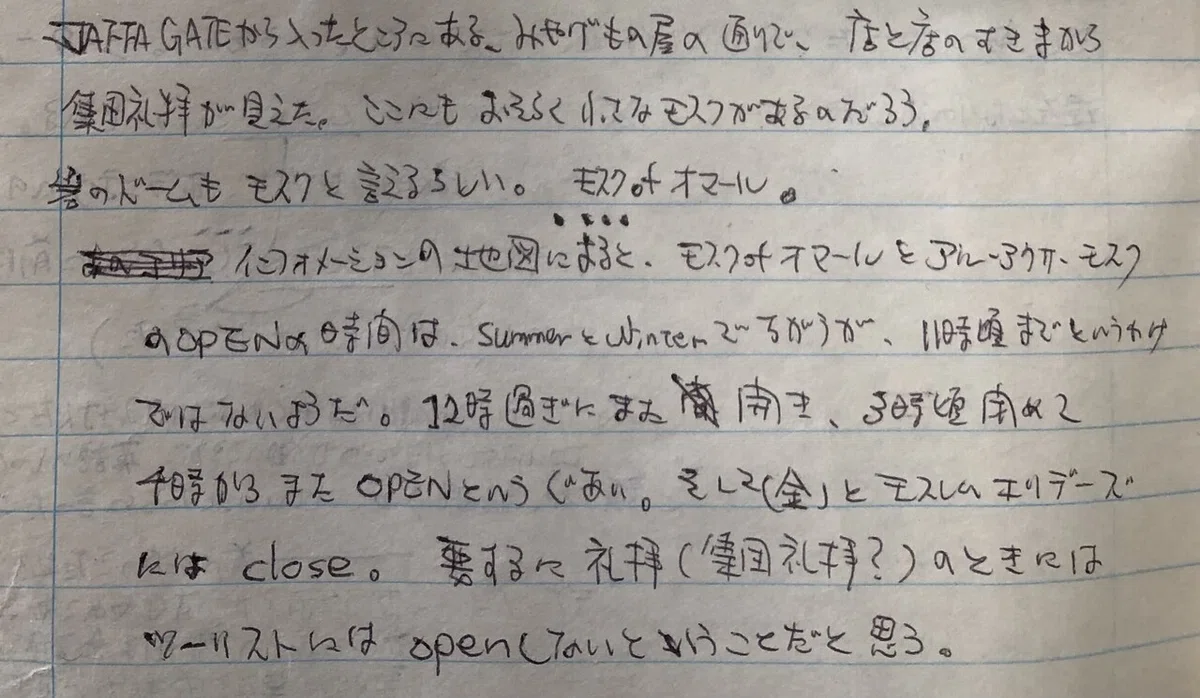 JAFFA GATEから入ったところにある、みやげもの屋の通りで、店と店のすきまから
集団礼拝が見えた。ここにもおそらく小さなモスクがあるのだろう。
岩のドームもモスクと言えるらしい。モスクofオマール。
インフォメーションの地図によると、モスクofオマールとアル-アクサ・モスク
のOPENの時間は、summerとwinterでちがうが、11時頃までというわけ
ではないようだ。12時過ぎにまた開き、3時頃閉めて
4時からまたOPENというぐあい。そして(金)とモスレムホリデーズ
にはclose。要するに礼拝(集団礼拝?)のときには
ツーリストにはopenしないということだと思う。